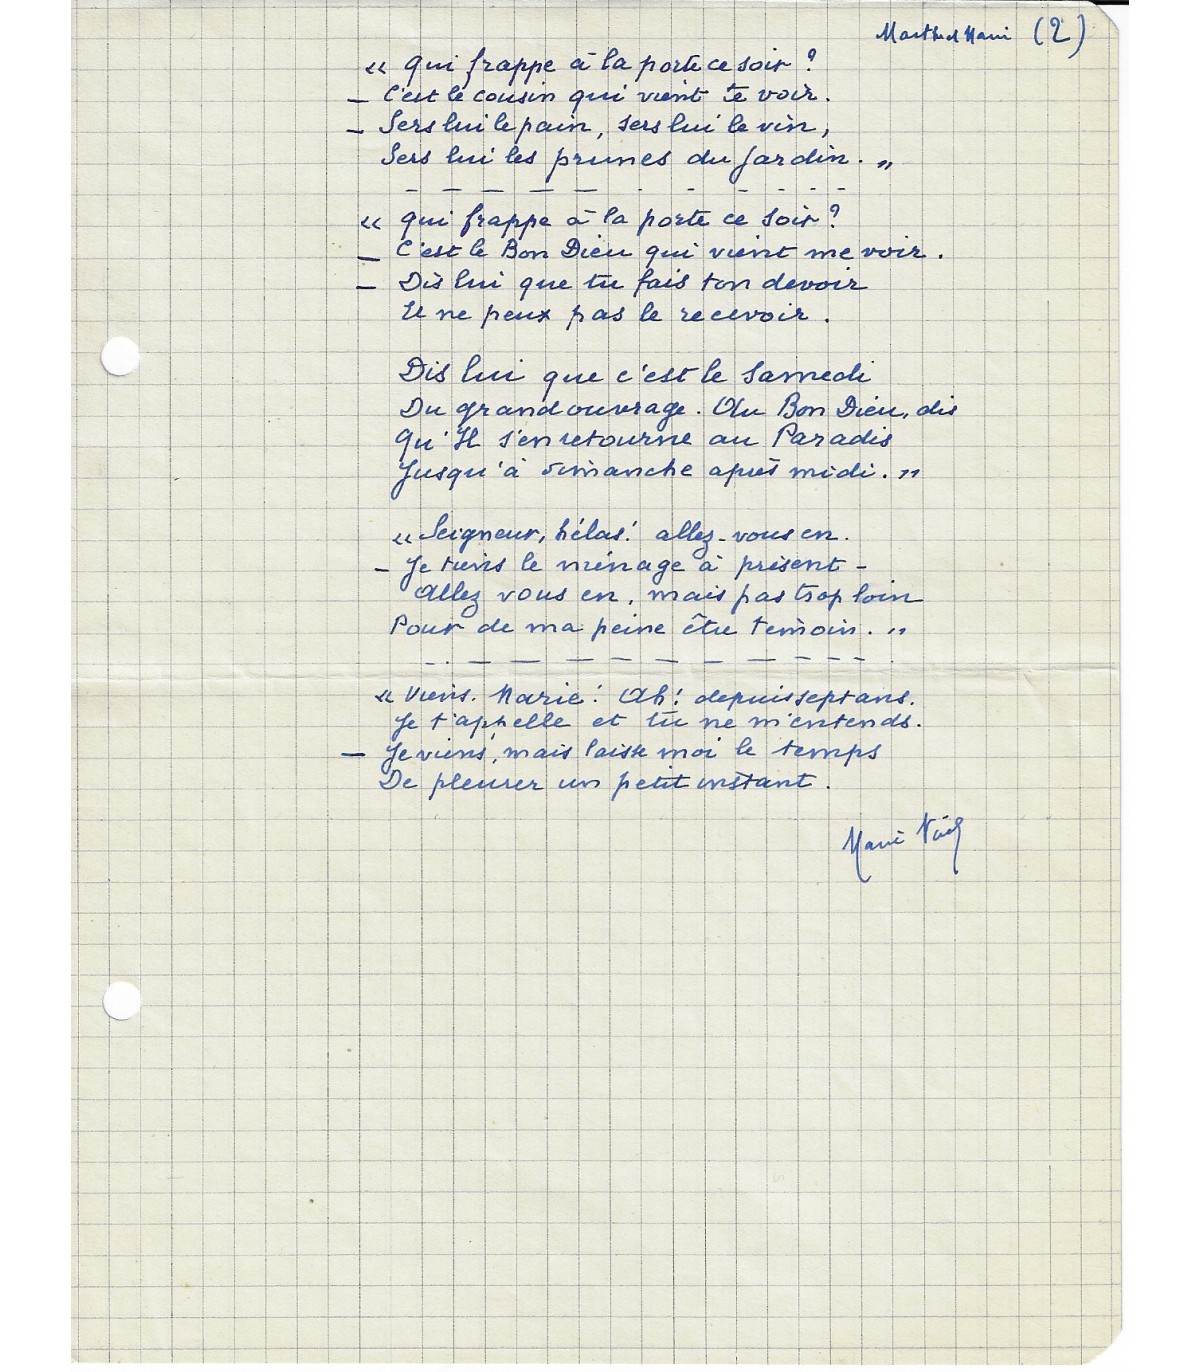 Marthe et Marie (2)
« Qui frappe à la porte ce soir ?
— C'est le cousin qui vient te voir.
— Sers lui le pain, sers lui le vin,
Sers lui les prunes du jardin. »
« Qui frappe à la porte ce soir ?
— C'est le Bon Dieu qui vient me voir.
— Dis lui que tu fais ton devoir
Et ne peux pas le recevoir.
Dis lui que c'est le Samedi
Du grand ouvrage. Au Bon Dieu, dis
Qu'Il s'en retourne au Paradis
Jusqu'à dimanche après midi. »
« Seigneur, hélas ! allez-vous en.
— Je tiens le ménage à présent —
Allez vous en, mais pas trop loin
Pour de ma peine être témoin. »
« Viens. Marie ! Ah ! depuis sept ans.
Je t'appelle et tu ne m'entends.
— Je viens, mais laisse moi le temps
De pleurer un petit instant.
Marie Noël